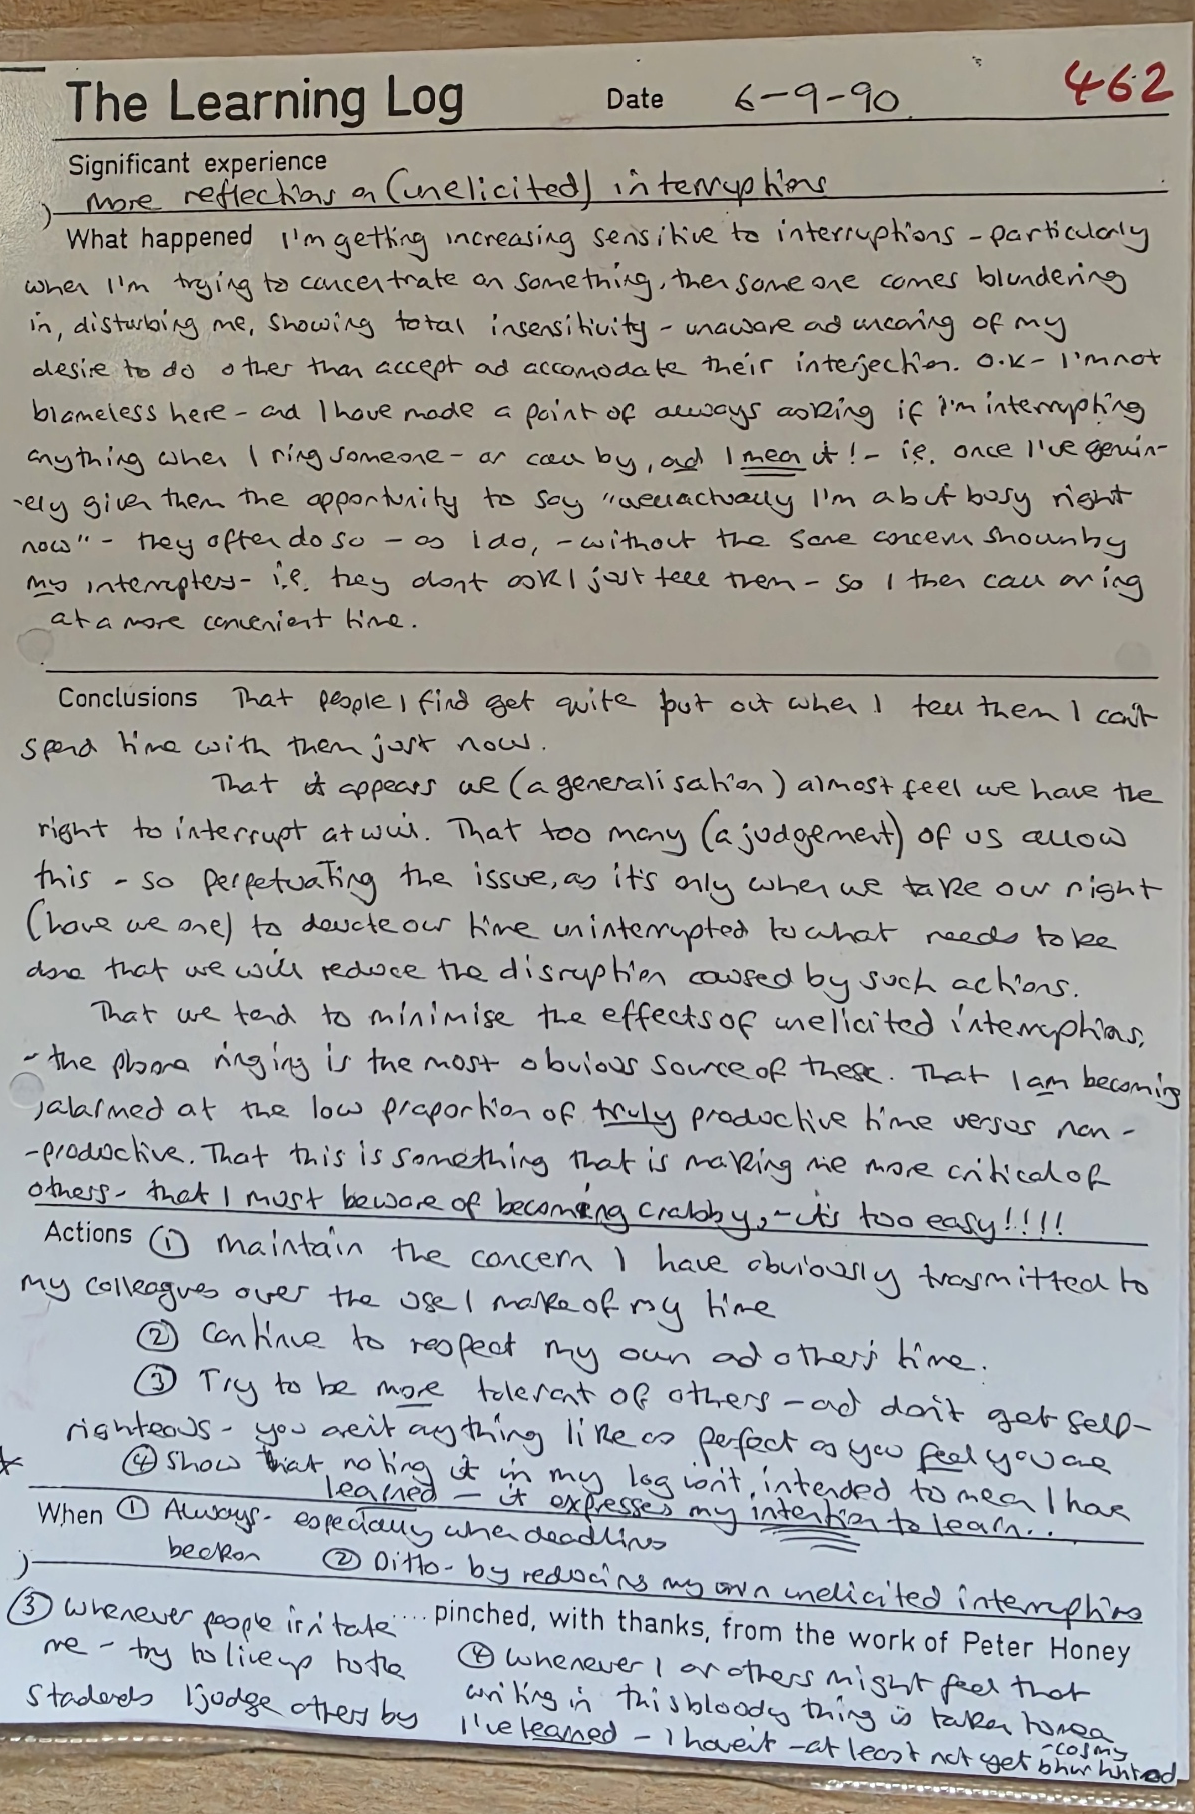 The Learning Log Date 6-9-90 462
Significant experience
more reflections on (unelicited) interruptions
What happened I'm getting increasing sensitive to interruptions - particularly
when I'm trying to concentrate on something, then someone comes blundering
in, disturbing me, showing total insensitivity - unaware ad uncaring of my
desire to do other than accept ad accomodate their interjection. O.K - I'm not
blameless here - and I have made a point of always asking if I'm interrupting
anything when I ring someone - or call by, ad I mean it! - i.e. once I've genuin-
-ely given them the opportunity to say "well actually I'm a bit busy right
now" - they often do so - as I do, - without the same concern shown by
my interrupters - i.e. they dont ask I just tell them - so I then call or ring
at a more convenient time.
Conclusions That people I find get quite put out when I tell them I can't
spend time with them just now.
That it appears we (a generalisation) almost feel we have the
right to interrupt at will. That too many (a judgement) of us allow
this - so perpetuating the issue, as it's only when we take our right
(have we one) to devote our time uninterrupted to what needs to be
done that we will reduce the disruption caused by such actions.
That we tend to minimise the effects of unelicited interruptions,
- the phone ringing is the most obvious source of these. That I am becoming
alarmed at the low proportion of truly productive time versus non-
-productive. That this is something that is making me more critical of
others - that I must beware of becoming crabby, - it's too easy!!!!
Actions ① Maintain the concern I have obviously trasmitted to
my colleagues over the use I make of my time
② Continue to respect my own ad others time.
③ Try to be more tolerant of others - ad don't get self-
righteous - you aren't anything like as perfect as you feel you are
④ Show that noting it in my log isn't intended to mean I have
learned - it expresses my intention to learn..
When ① Always - especially when deadlines
beckon ② Ditto - by reducing my own unelicited interruptions
③ Whenever people irritate .... pinched, with thanks, from the work of Peter Honey
me - try to live up to the
standards I judge others by
④ Whenever I or others might feel that
writing in this bloody thing is taken to mean
I've learned - I haven't - at least not yet - cos my